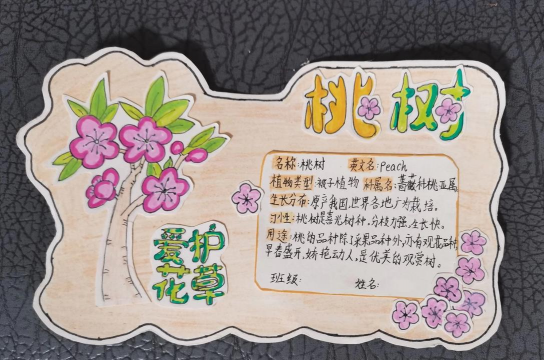 桃树
名称:桃树 英文名:Peach
植物类型:被子植物 种属名:蔷薇科桃亚属
生长分布:原产我国,世界各地广为栽培。
习性:桃树是喜光树种,分枝力强,生长快。
用途:桃的品种除了采果品种外,亦有观花品种,
早春盛开,娇艳动人,是优美的观赏树。
班级: 姓名:
爱护
花草